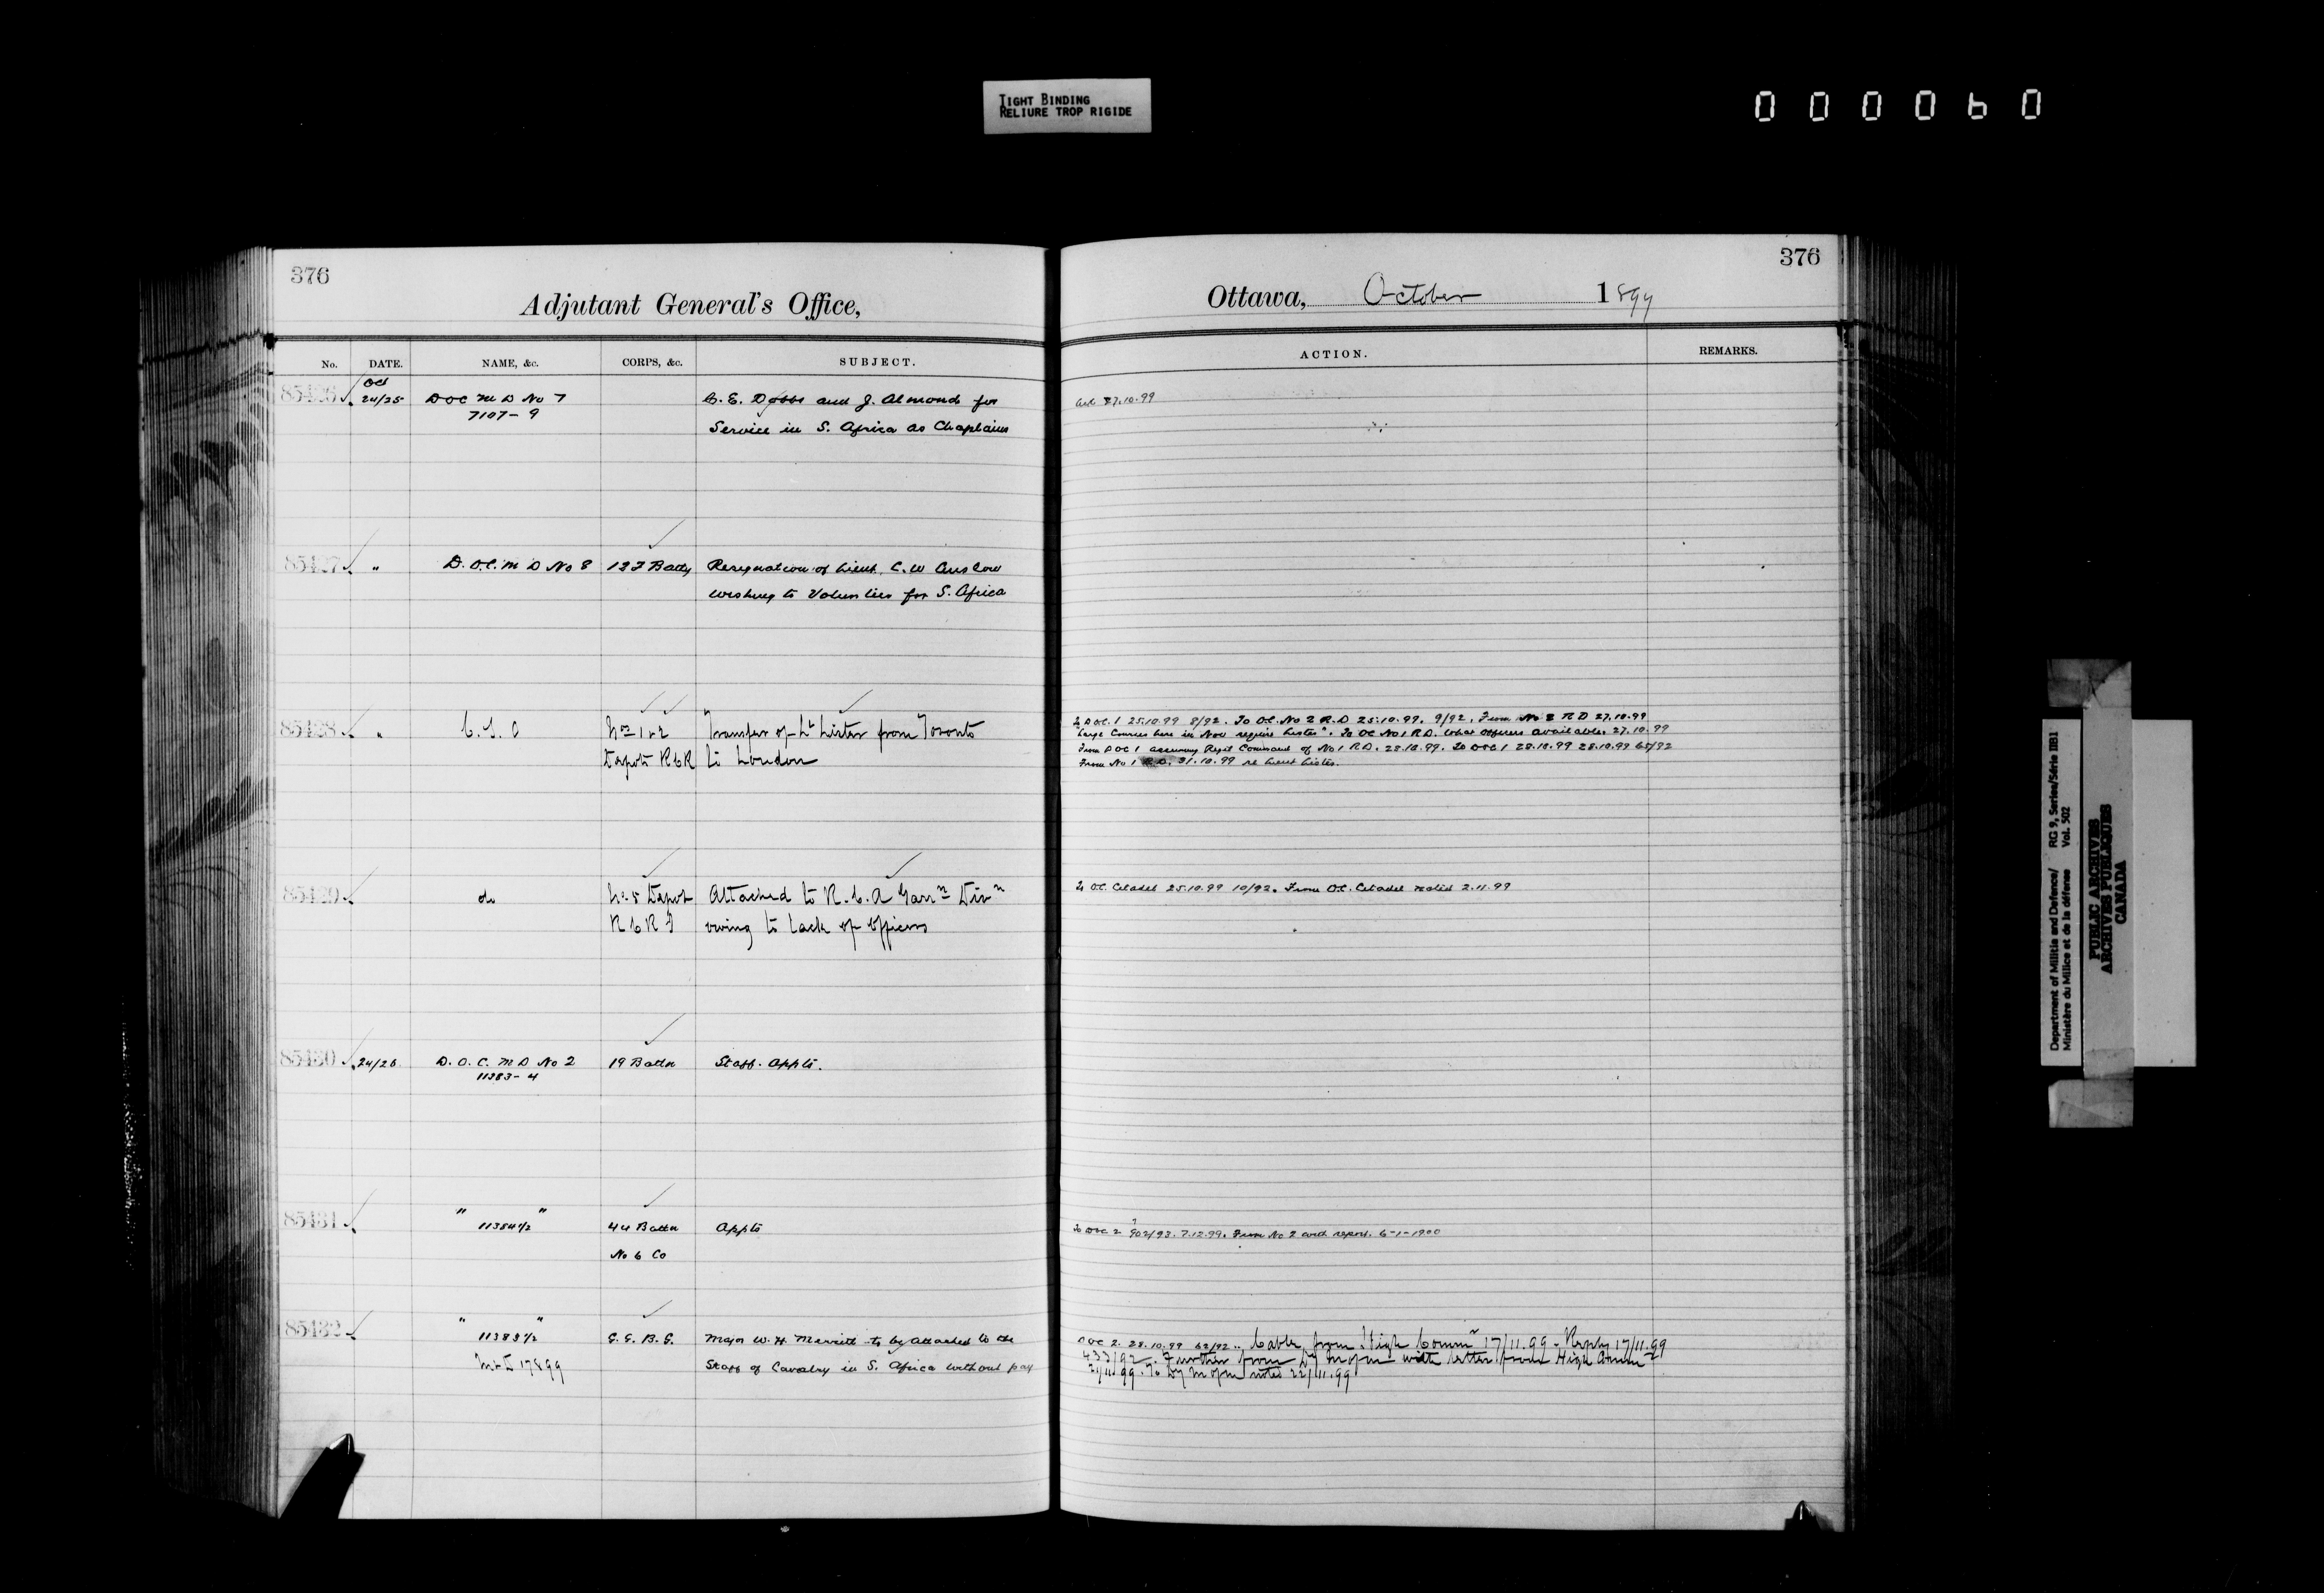 TIGHT BINDING
RELIURE TROP RIGIDE
000060
376
Adjutant General's Office,
No. DATE. NAME, &c. CORPS, &c. SUBJECT.
85426 Oct 24/25 DOC M D No 7 C. E. Dobbs and J. Almond for
7107-9 Service in S. Africa as Chaplains
85427 " D.O.C. M D No 8 12 F Batty Resignation of Lieut. C. W Anslow
wishing to Volunteer for S. Africa
85428 " C.S.O Nos 1 & 2 Transfer of Lt Lister from Toronto
Depots RCR to London
85429 do No 5 Depot Attached to R.C.A Garrn Divn
RCRI owing to lack of officers
85430 24/26 D.O.C. M D No 2 19 Battn Staff. Appts.
11383-4
85431 " " 11384 1/2 44 Battn Appts
No 6 Co
85432 " " 11383 1/2 G.G.B.G. Major W. H. Merritt to be attached to the
17899 Staff of Cavalry in S. Africa without pay
376
Ottawa, October 1899
ACTION. REMARKS.
Ack 27.10.99
To DOC. 1 25.10.99 8/92. To O.C. No 2 R.D 25.10.99. 9/92. From No 2 RD 27.10.99
"Large Courses here in Nov require Lister". To OC No 1 R.D. What officers available. 27.10.99
From DOC 1 assuming Regtl Command of No 1 RD. 28.10.99. To DOC 1 28.10.99 28.10.99 65/92
From No 1 R.D. 31.10.99 re Lieut Lister.
To O.C. Citadel 25.10.99 10/92. From O.C. Citadel noted 2.11.99
To DOC 2 902/93. 7.12.99. From No 2 with report. 6-1-1900
DOC 2. 28.10.99 62/92.. Cable from High Commr 17/11.99. Reply 17/11.99
433/92. Further from Dy M of M with letter from High Commr
21/11/99. To Dy M of M noted 22/11.99
Department of Militia and Defence/ RG 9, Series/Série IIB1
Ministère du Milice et de la défense Vol. 502
PUBLIC ARCHIVES
ARCHIVES PUBLIQUES
CANADA